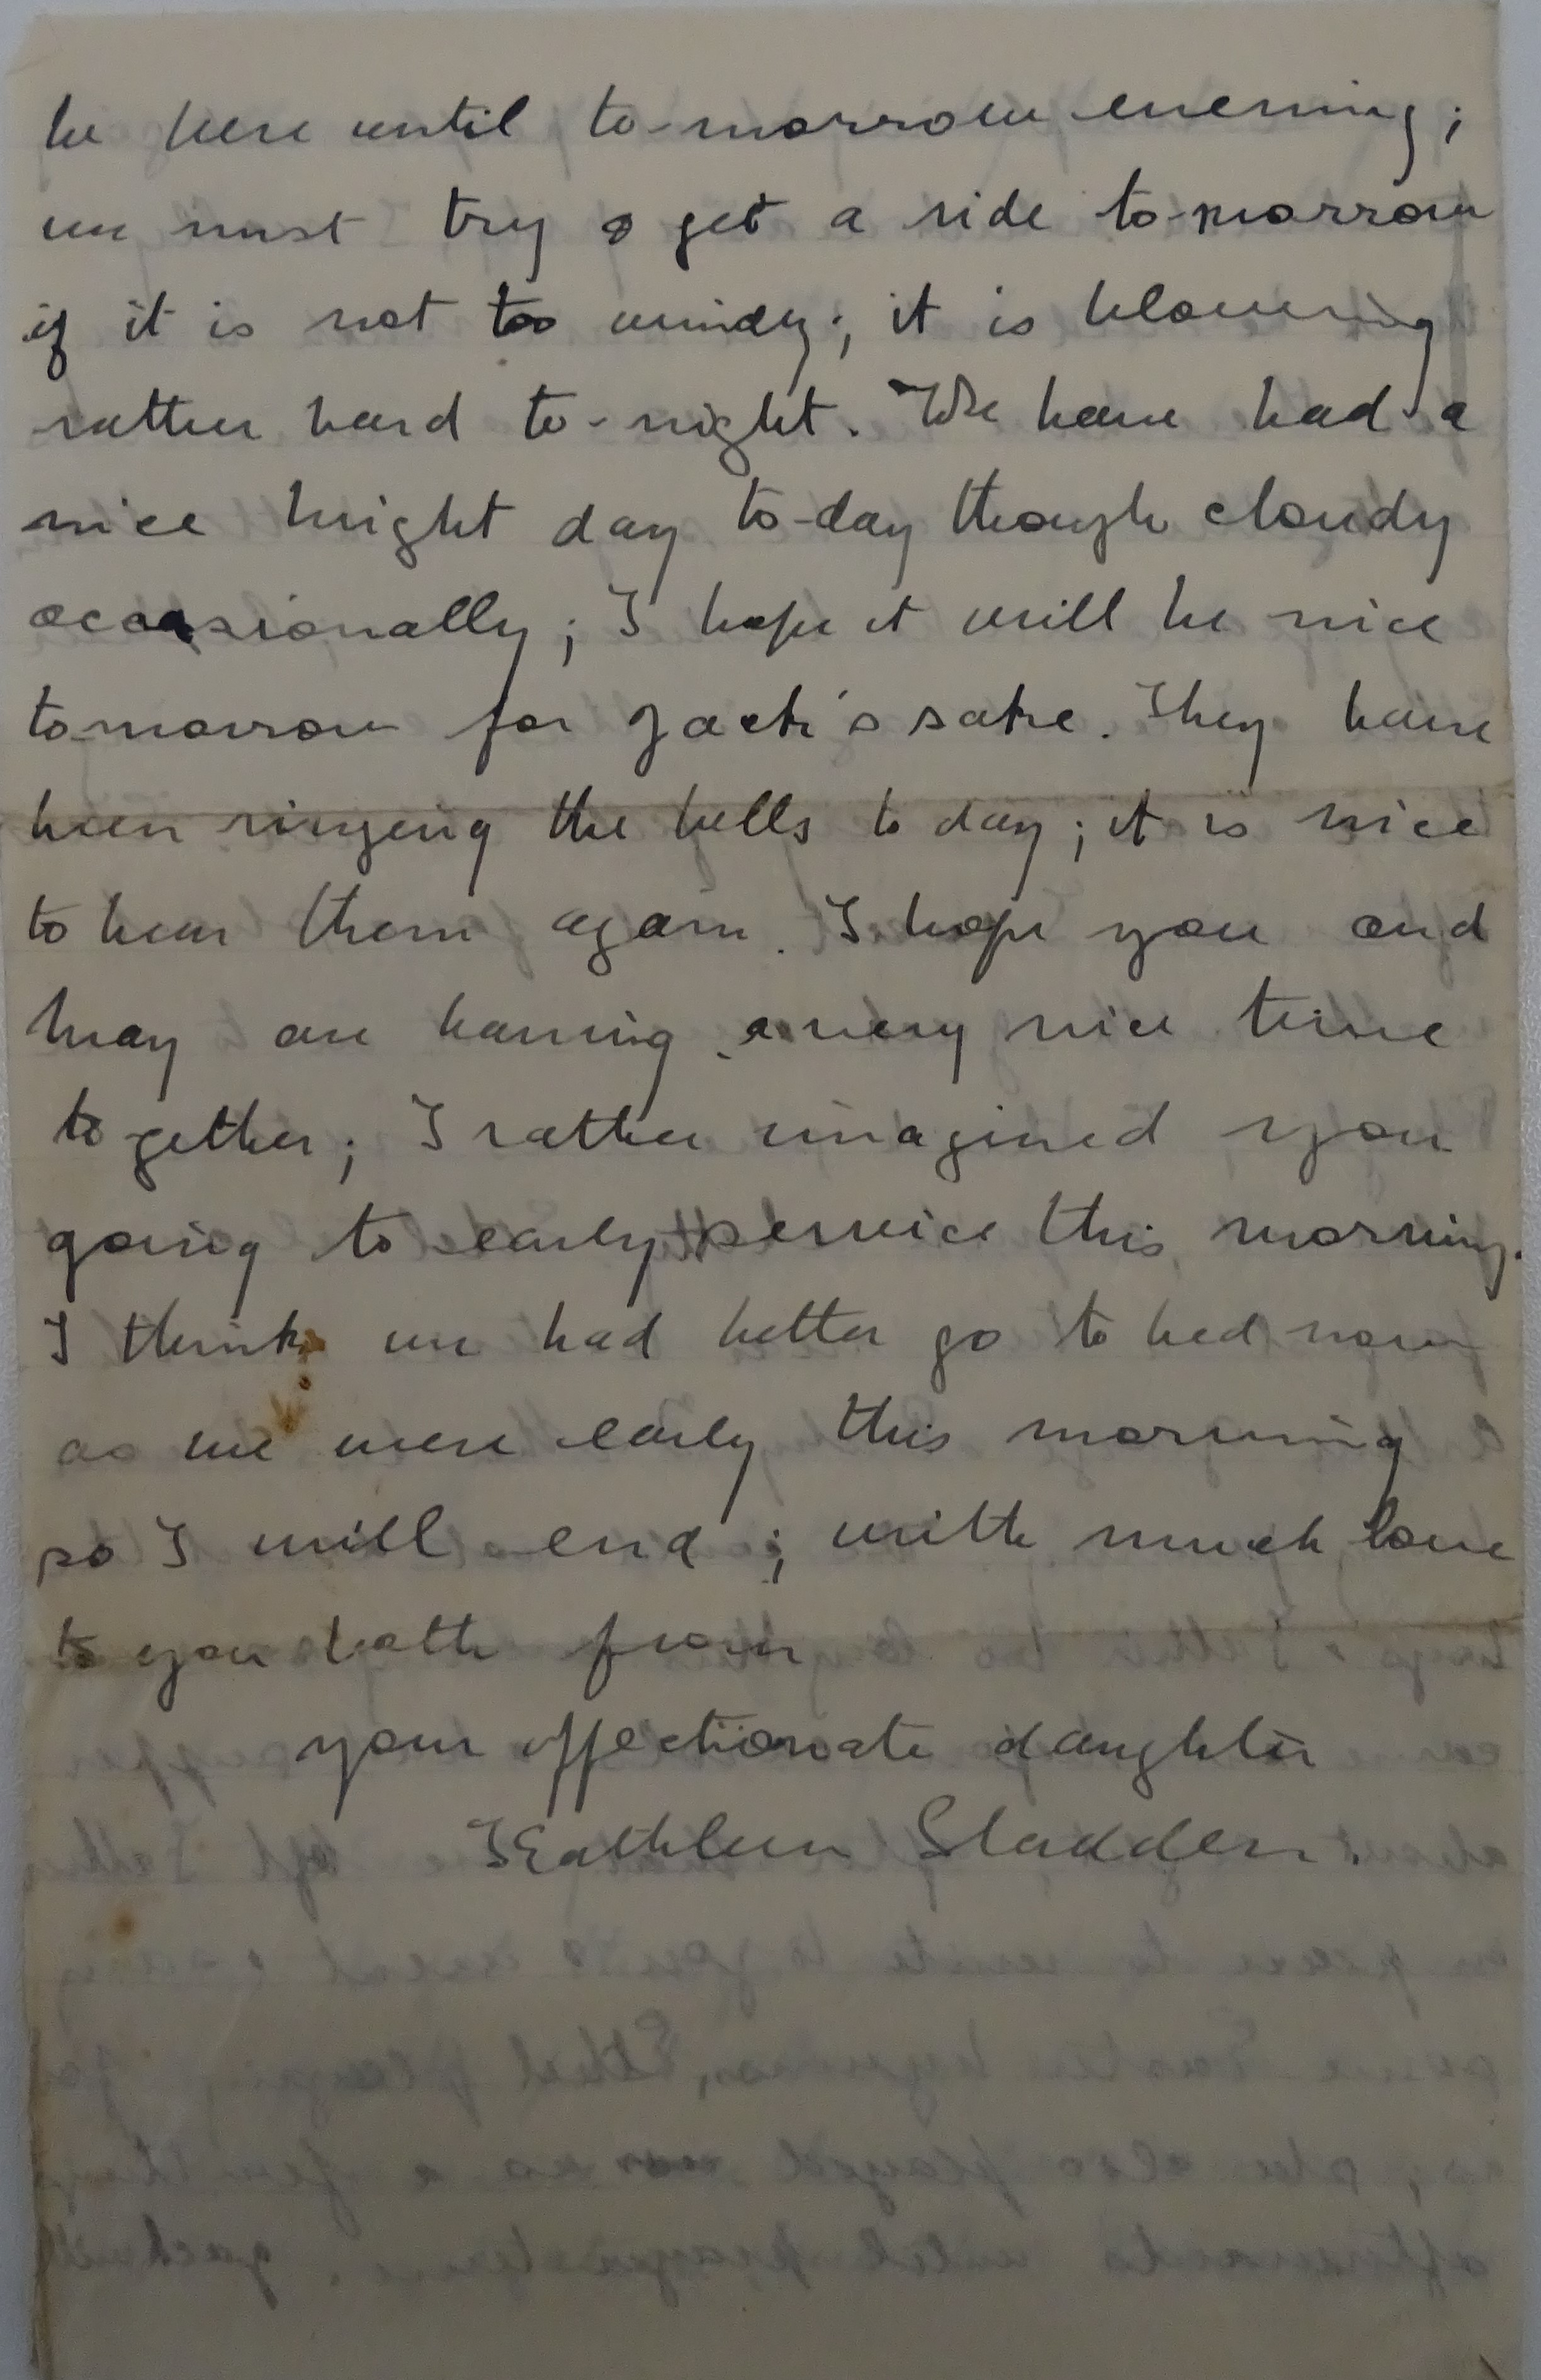 be here until to-morrow evening;
we must try & get a ride to-morrow
if it is not too windy; it is blowing
rather hard to-night. We have had a
nice bright day to-day though cloudy
occasionally; I hope it will be nice
tomorrow for Jack's sake. They have
been ringing the bells to day; it is nice
to hear them again. I hope you and
May are having a very nice time
together; I rather imagined you
going to early service this morning.
I think we had better go to bed now
as we were early this morning
so I will end; with much love
to you both from
your affectionate daughter
Kathleen Sladden.